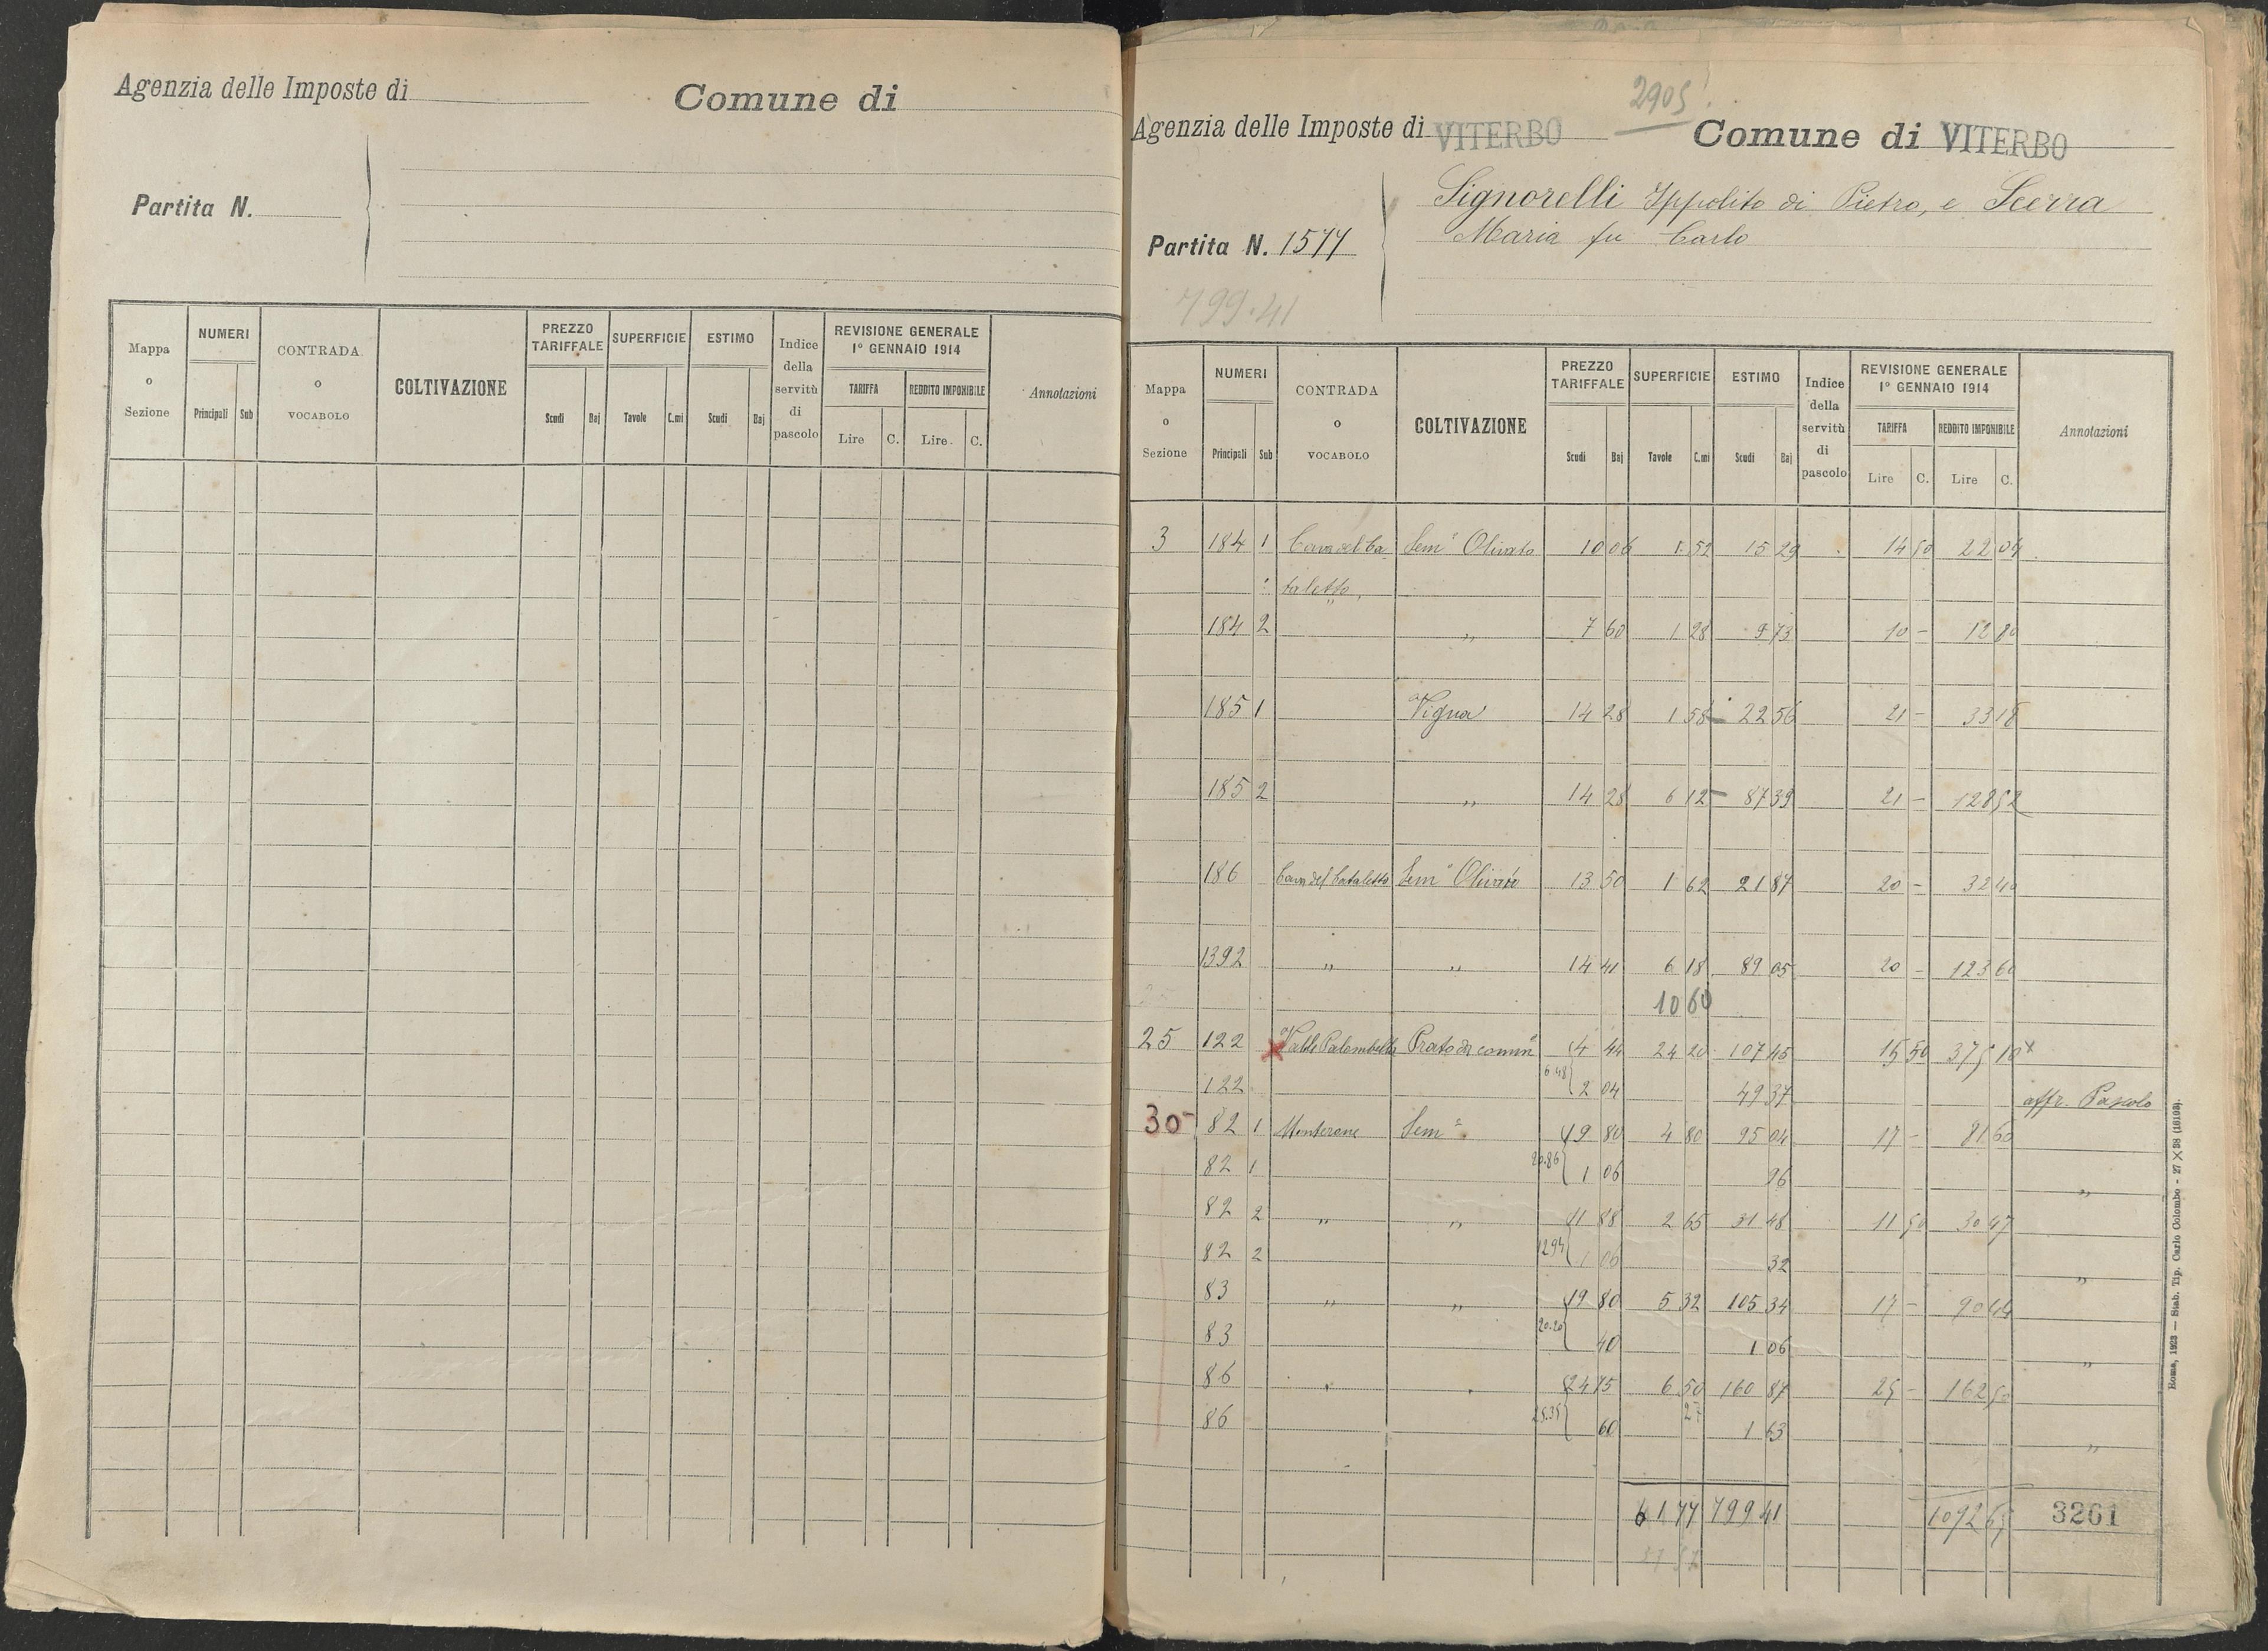 Agenzia delle Imposte di
Comune di
Partita N.
Mappa o Sezione
NUMERI
Principali Sub
CONTRADA o VOCABOLO
COLTIVAZIONE
PREZZO TARIFFALE
Scudi Baj
SUPERFICIE
Tavole C.mi
ESTIMO
Scudi Baj
Indice della servitù di pascolo
REVISIONE GENERALE 1° GENNAIO 1914
TARIFFA
Lire C.
REDDITO IMPONIBILE
Lire C.
Annotazioni
2905
Agenzia delle Imposte di VITERBO
Comune di VITERBO
Signorelli Ippolito di Pietro, e Scerra
Maria fu Carlo
Partita N. 1577
799.41
Mappa o Sezione
NUMERI
Principali Sub
CONTRADA o VOCABOLO
COLTIVAZIONE
PREZZO TARIFFALE
Scudi Baj
SUPERFICIE
Tavole C.mi
ESTIMO
Scudi Baj
Indice della servitù di pascolo
REVISIONE GENERALE 1° GENNAIO 1914
TARIFFA
Lire C.
REDDITO IMPONIBILE
Lire C.
Annotazioni
3 184 1 Cava del Ca Sem° Olivato 10 06 1 52 15 29 14 50 22 04
taletto
184 2 " 7 60 1 28 9 73 10 – 12 80
185 1 Vigna 14 28 1 58 22 56 21 – 33 18
185 2 " 14 28 6 12 87 39 21 – 128 52
186 Cava del Cataletto Sem° Olivato 13 50 1 62 21 87 20 – 32 40
1392 " " 14 41 6 18 89 05 20 – 123 60
10 60
25 122 Valle Palombella Prato di comun 4 44 24 20 107 45 15 50 375 10 x
122 6 48 2 04 49 37 aff. Pascolo
30 82 1 Monterone Sem° 19 80 4 80 95 04 17 – 81 60
82 1 20.86 1 06 96 "
82 2 " " 11 88 2 65 31 48 11 50 30 47
82 2 12 94 1 06 32 "
83 " " 19 80 5 32 105 34 17 – 90 44
83 20.20 40 1 06 "
86 " " 24 75 6 50 160 87 25 – 162 50
86 25.35 60 27 1 63 "
61 77 799 41 1092 65 3261
Roma, 1923 — Stab. Tip. Carlo Colombo - 27 × 38 (10193).